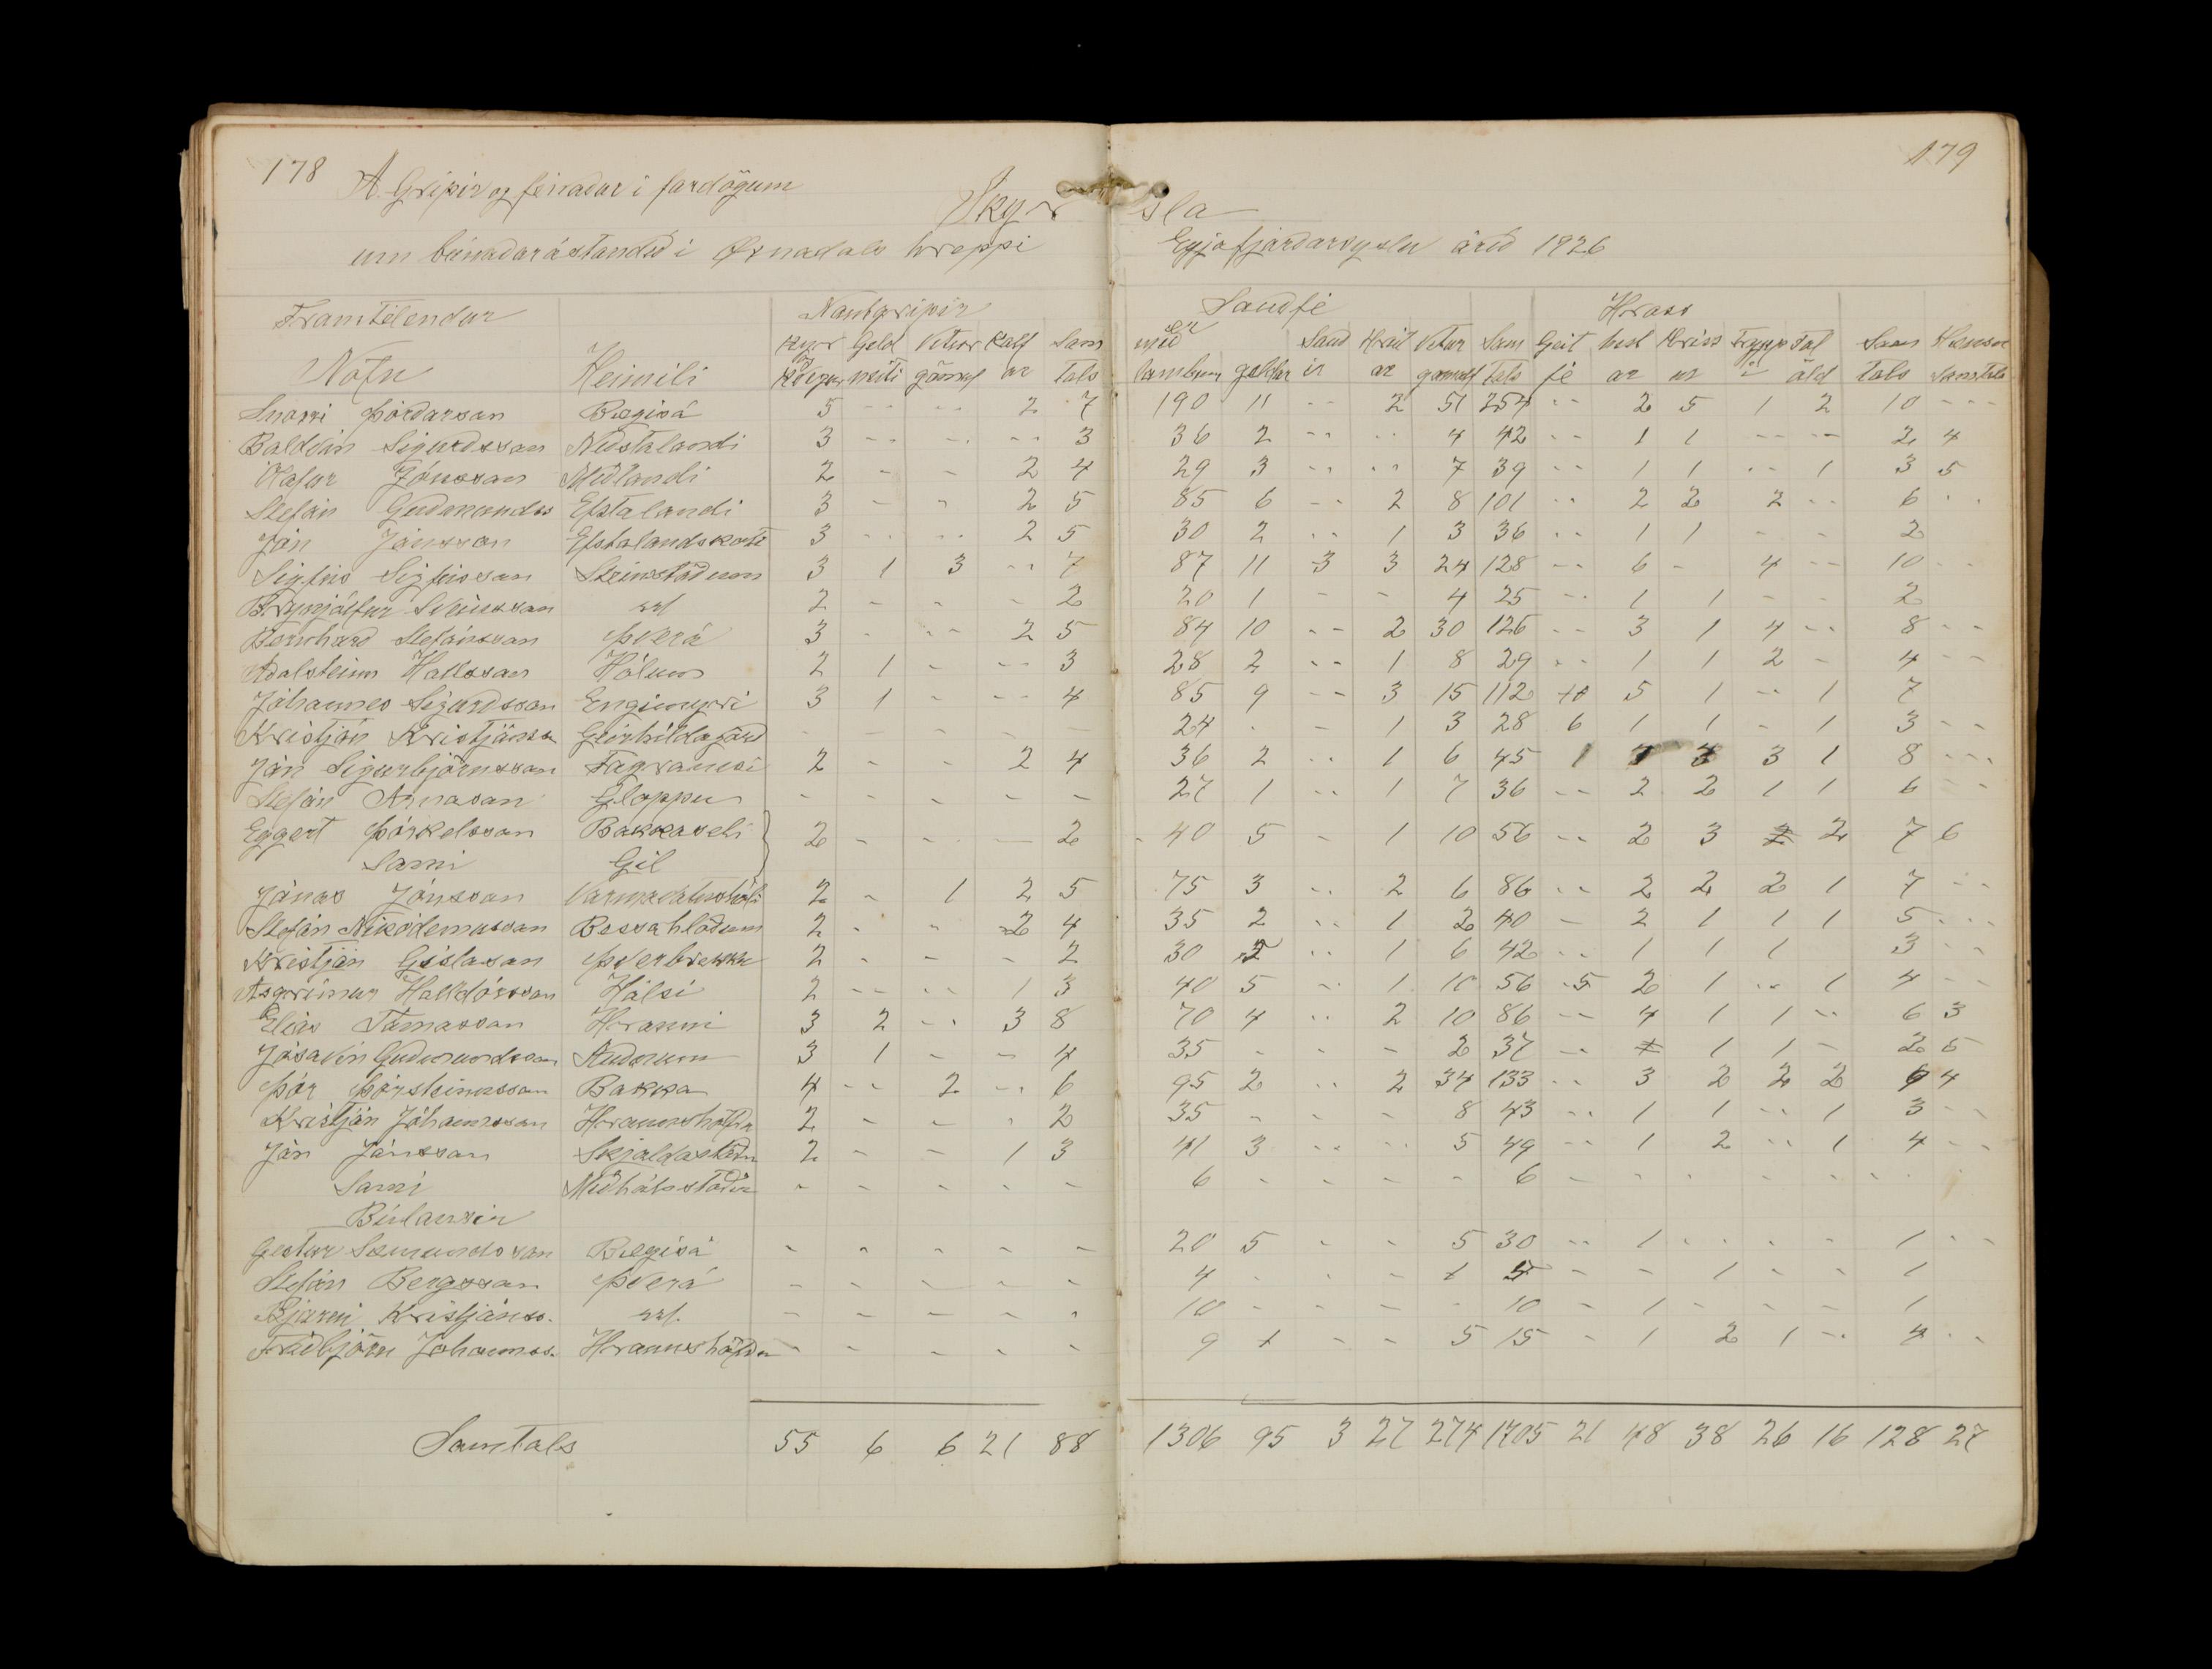 178
179
A. Gripir og fénaður í fardögum
Skýrsla
um búnaðarástandið í Øxnadals hreppi Eyjafjarðarsýslu árið 1926
Framteljendur Nautgripir Sauðfé Hross
Nöfn Heimili Kýr og kelfdar Geld neiti Vetur gömul Kálf ar Sam tals Ær með lömbum geldar Sauð ir Hrút ar Vetur gamalt Sam tals Geit fé hest ar Hriss ur Trypp i Fol öld Sam tals Hænsn Samtals
Snorri Þórðarson Bægisá 5 -- -- 2 7 190 11 -- 2 51 254 -- 2 5 1 2 10 ---
Baldvin Sigurdsson Neðstalandi 3 -- -- -- 3 36 2 -- -- 4 42 -- 1 1 -- -- 2 4
Ólafur Jónsson Miðlandi 2 - - 2 4 29 3 -- -- 7 39 -- 1 1 -- 1 3 5
Stefán Guðmundss Efstalandi 3 - - 2 5 85 6 -- 2 8 101 -- 2 2 2 -- 6 --
Jón Jónsson Efstalandskoti 3 -- -- 2 5 30 2 -- 1 3 36 -- 1 1 - - 2
Sigfús Sigfússon Steinstöðum 3 1 3 -- 7 87 11 3 3 24 128 -- 6 - 4 -- 10 --
Brynjólfur Sveinsson sst 2 - - - 2 20 1 - - 4 25 -- 1 1 - - 2
Bernharð Stefánsson Þverá 3 - -- 2 5 84 10 -- 2 30 126 -- 3 1 4 -- 8 --
Aðalsteinn Hallsson Hólum 2 1 - -- 3 28 2 -- 1 8 29 -- 1 1 2 - 4 --
Jóhannes Sigurdsson Engimýri 3 1 - -- 4 85 9 -- 3 15 112 5 1 -- 1 7
Kristján Kristjánss Geirhildagörð - - - - - 24 - - 1 3 28 6 1 1 - 1 3 --
Jón Sigurbjörnsson Fagranesi 2 - - 2 4 36 2 -- 1 6 45 1 3 1 8 ---
Stefán Arnason Gloppu - - - - - 27 1 -- 1 7 36 -- 2 2 1 1 6 --
Eggert Þórkelsson Bakkaseli 2 - - - 2 40 5 - 1 10 56 -- 2 3 2 2 7 6
Sami Gil
Jónas Jónsson Varmavatnshóli 2 - 1 2 5 75 3 -- 2 6 86 -- 2 2 2 1 7 --
Stefán Nikódemusson Bessahlöðum 2 - - 2 4 35 2 -- 1 2 40 - 2 1 1 1 5 ---
Kristján Gíslason Þverbrekku 2 - - - 2 30 5 -- 1 6 42 -- 1 1 1 3 --
Asgrímur Halldórsson Hálsi 2 -- -- 1 3 40 5 -- 1 10 56 5 2 1 -- 1 4 --
Elías Tómasson Hrauni 3 2 -- 3 8 70 4 -- 2 10 86 -- 4 1 1 -- 6 3
Jósavin Guðmundsson Auðnum 3 1 - - 4 35 - - - 2 37 -- 1 1 - 2 5
Þór Þórsteinsson Bakka 4 -- 2 -- 6 95 2 -- 2 34 133 -- 3 2 2 2 9 4
Kristján Jóhannsson Hraunshöfða 2 - - - 2 35 - - - 8 43 -- 1 1 -- 1 3 --
Jón Jónsson Skjaldastöðu 2 - - 1 3 41 3 -- -- 5 49 -- 1 2 -- 1 4 --
Sami Miðhálsstöðu - - - - - 6 - - - - 6 - - - - - - -
Búlausir
Gestur Sæmundsson Bægisá - - - - - 20 5 - - 5 30 -- 1 - - - 1 --
Stefán Bergsson Þverá - - - - - 4 - - - 1 5 - - 1 - - 1
Bjarni Kristjánss. sst. - - - - - 10 - - - - 10 - 1 - - - 1
Friðbjörn Jóhannss. Hraunshöfða - - - - - 9 1 - - 5 15 - 1 2 1 -- 4 --
Samtals 55 6 6 21 88 1306 95 3 27 274 1705 21 48 38 26 16 128 27